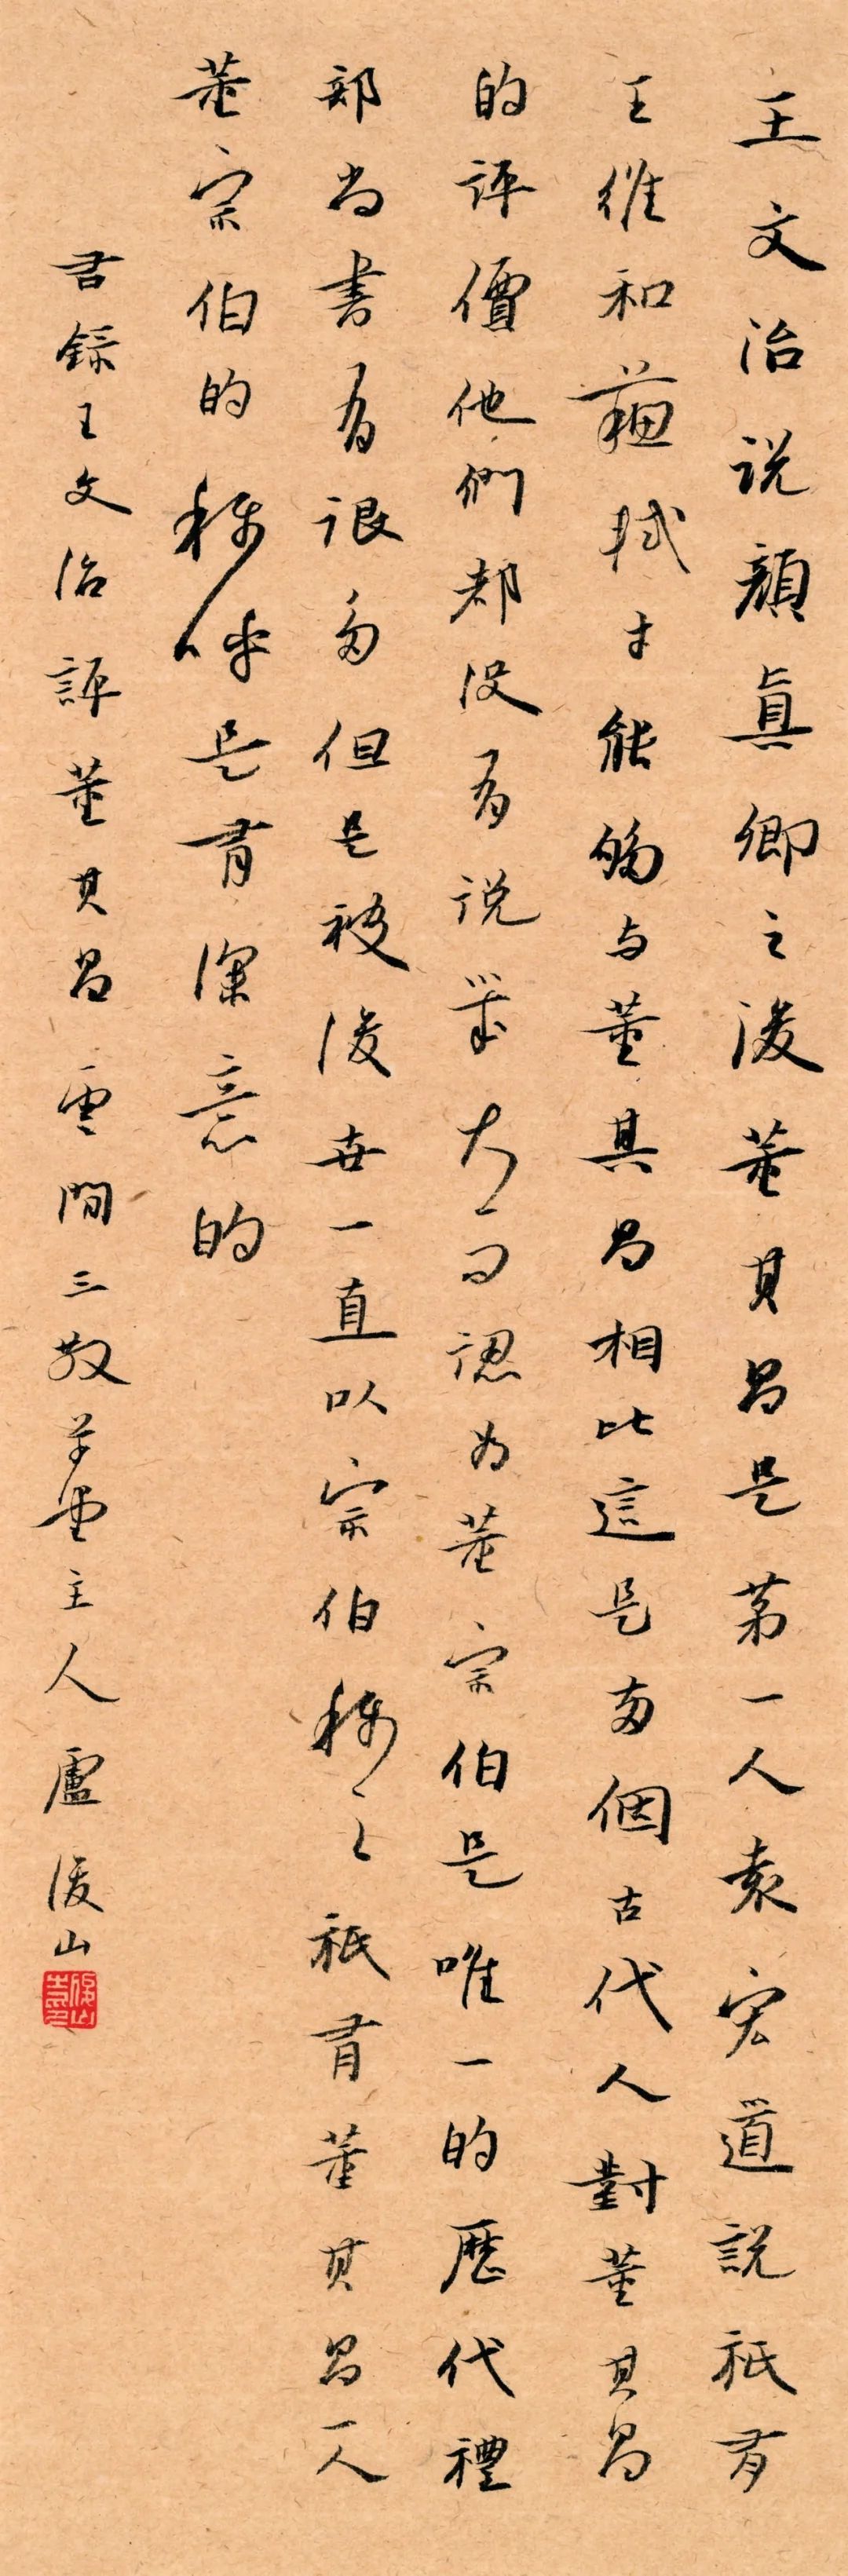 王文治说顔真卿之後董其昌是第一人袁宏道説祇有
王維和蘓軾才能够与董其昌相比這是两個古代人對董其昌
的評價他們都没有说董其昌認为董宗伯是唯一的歴代禮
部尚書有很多但是被後世一直以宗伯稱之祇有董其昌一人
董宗伯的稱呼是有深意的
君録王文治評董其昌雲間三敬草堂主人盧後山